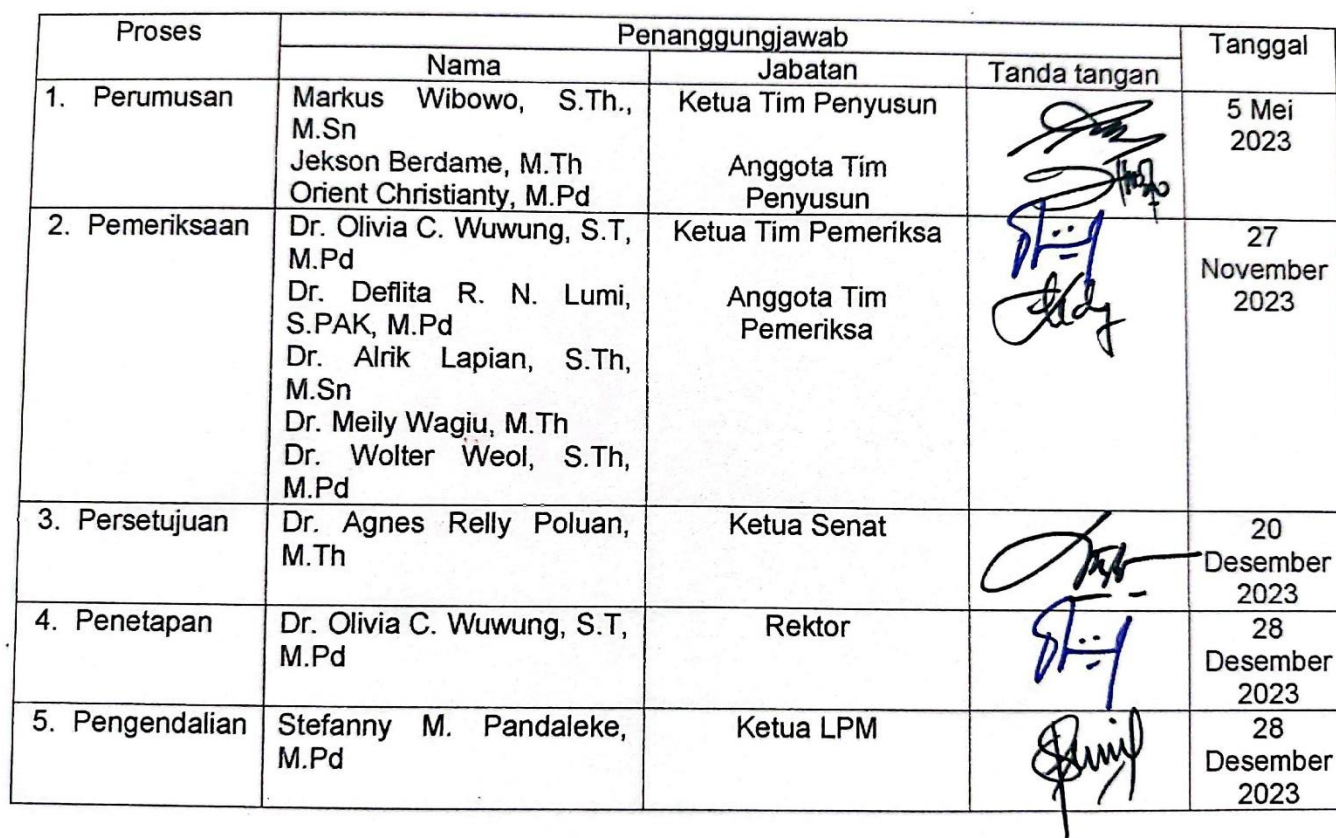 Proses
Penanggungjawab
Tanggal
Nama
Jabatan
Tanda tangan
1. Perumusan
Markus Wibowo, S.Th.,
M.Sn
Jekson Berdame, M.Th
Orient Christianty, M.Pd
Ketua Tim Penyusun
Anggota Tim
Penyusun
5 Mei
2023
2. Pemeriksaan
Dr. Olivia C. Wuwung, S.T,
M.Pd
Dr. Deflita R. N. Lumi,
S.PAK, M.Pd
Dr. Alrik Lapian, S.Th,
M.Sn
Dr. Meily Wagiu, M.Th
Dr. Wolter Weol, S.Th,
M.Pd
Ketua Tim Pemeriksa
Anggota Tim
Pemeriksa
27
November
2023
3. Persetujuan
Dr. Agnes Relly Poluan,
M.Th
Ketua Senat
20
Desember
2023
4. Penetapan
Dr. Olivia C. Wuwung, S.T,
M.Pd
Rektor
28
Desember
2023
5. Pengendalian
Stefanny M. Pandaleke,
M.Pd
Ketua LPM
28
Desember
2023